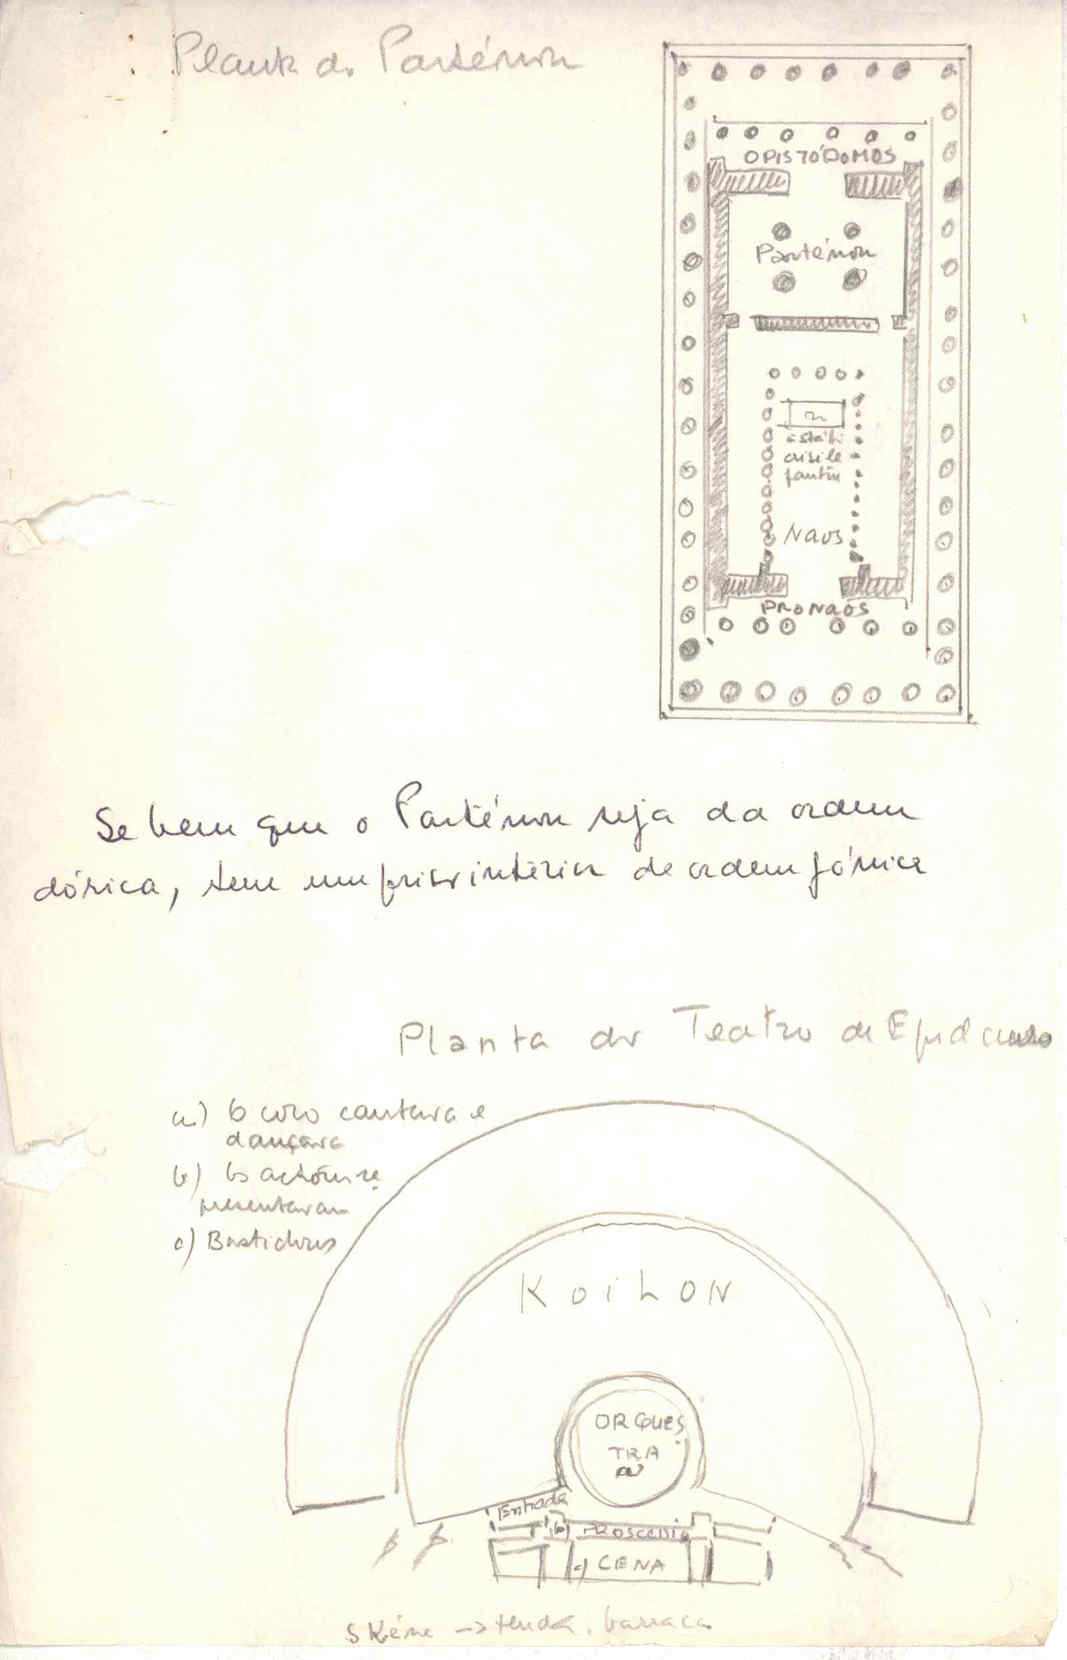 Planta do Parténon
OPISTÓDOMOS
Parténon
estátu
crisele
fantin
NAOS
PRONAOS
Se bem que o Parténon seja da ordem
dórica, tem um friso interior de ordem jónica
Planta do Teatro de Epidauro
a) O coro cantava e
dançava
b) Os actores re
presentavam
c) Bastidores
KOILON
ORQUES
TRA
a)
Entrada
b) Proscenio
c) CENA
Skéne -> tenda, barraca